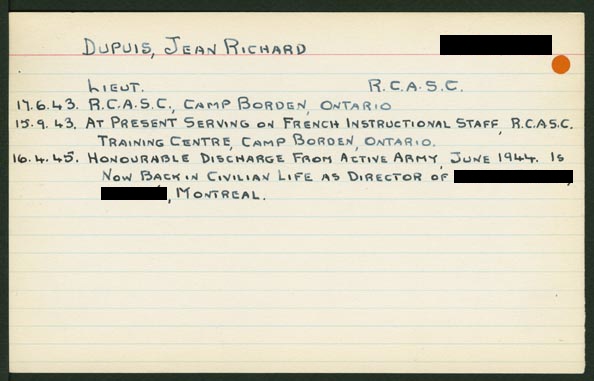 DUPUIS, JEAN RICHARD
LIEUT. R.C.A.S.C.
17.6.43. R.C.A.S.C., CAMP BORDEN, ONTARIO
15.9.43. AT PRESENT SERVING ON FRENCH INSTRUCTIONAL STAFF, R.C.A.S.C.
TRAINING CENTRE, CAMP BORDEN, ONTARIO.
16.4.45. HONOURABLE DISCHARGE FROM ACTIVE ARMY, JUNE 1944. IS
NOW BACK IN CIVILIAN LIFE AS DIRECTOR OF ,
, MONTREAL.